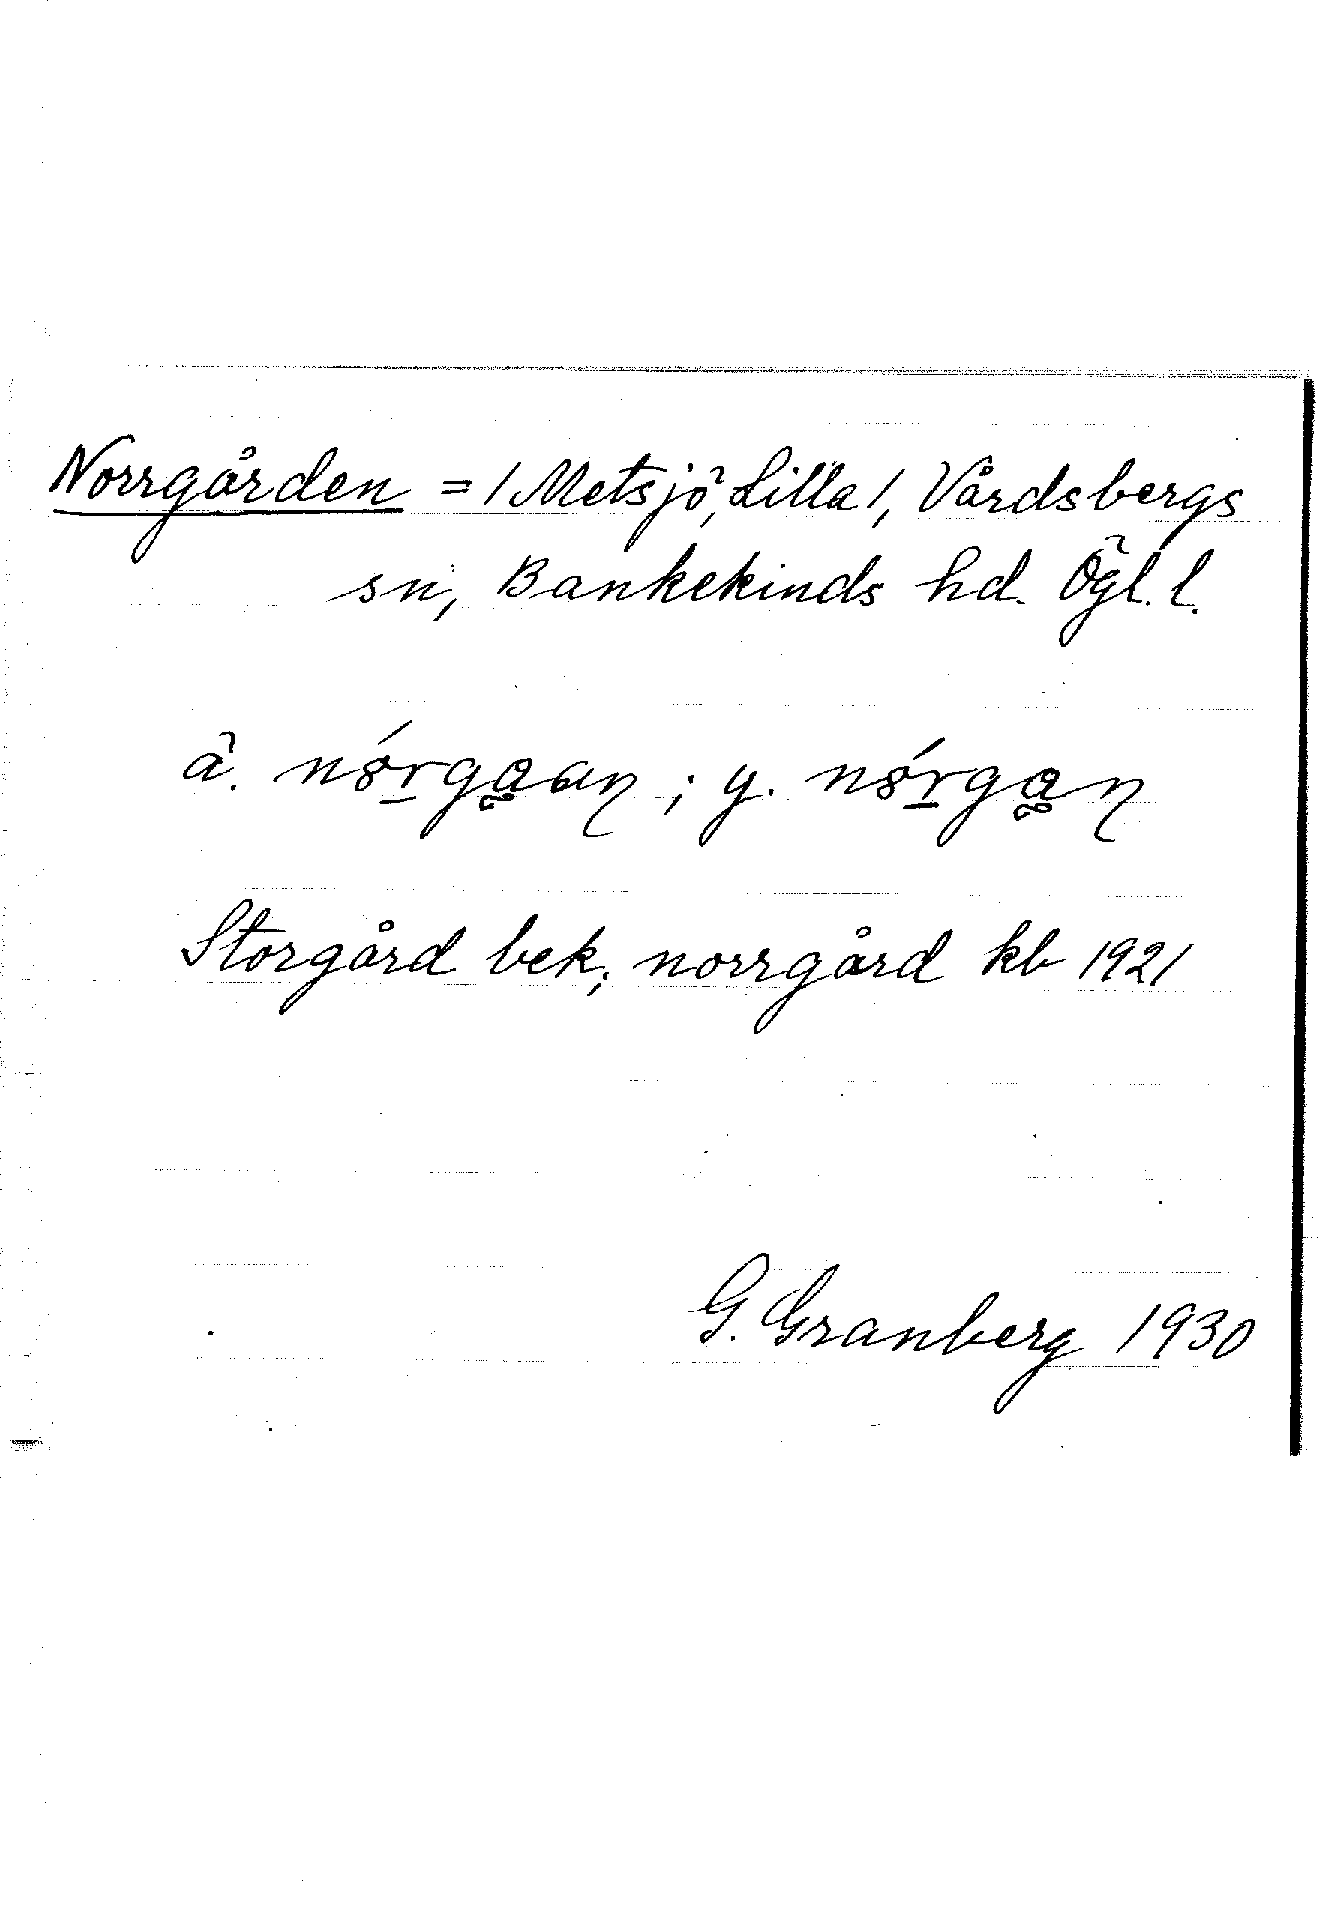 Norrgården = / Metsjö, Lilla /, Vårdsbergs
sn, Bankekinds hd. Ögl. l.
ä. nórgaan ; y. nórgan
Storgård bek; norrgård kb 1921
G. Granberg 1930